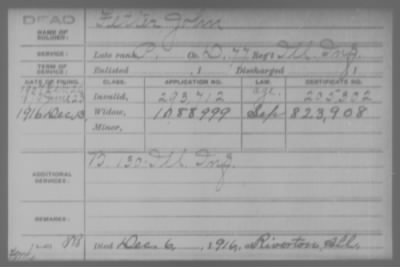 DEAD
NAME OF SOLDIER: John
SERVICE: Late rank P., Co. D, 77 Reg't Ill. Inf.
TERM OF SERVICE: Enlisted , 1 Discharged , 1
DATE OF FILING. CLASS. APPLICATION NO. LAW. CERTIFICATE NO.
Invalid, 293,712 age, 205,302
1916 Dec. 13, Widow, 1088999 Sep 823,908
Minor,
ADDITIONAL SERVICES: B 130 Ill. Inf.
REMARKS:
Died Dec. 6, 1916, Riverton, Ill.